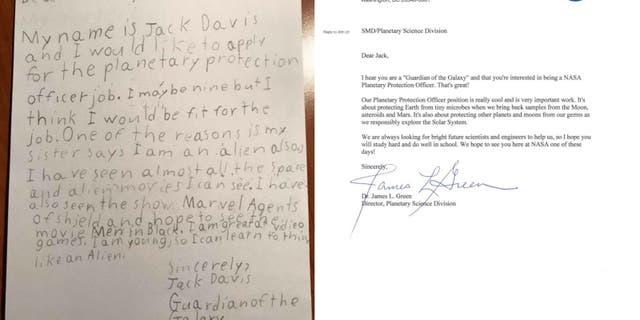 My name is Jack Davis
and I would like to apply
for the planetary protection
officer job. I may be nine but I
think I would be fit for the
job. One of the reasons is my
sister says I am an alien also
I have seen almost all the space
and alien movies I can see. I have
also seen the show Marvel Agents
of shield and hope to see the
movie Men in Black. I am great at video
games. I am young, so I can learn to think
like an Alien.
Sincerely,
Jack Davis
Guardian of the
Galaxy
Washington, DC 20546-0001
Reply to Attn of:
SMD/Planetary Science Division
Dear Jack,
I hear you are a "Guardian of the Galaxy" and that you're interested in being a NASA
Planetary Protection Officer. That's great!
Our Planetary Protection Officer position is really cool and is very important work. It's
about protecting Earth from tiny microbes when we bring back samples from the Moon,
asteroids and Mars. It's also about protecting other planets and moons from our germs as
we responsibly explore the Solar System.
We are always looking for bright future scientists and engineers to help us, so I hope you
will study hard and do well in school. We hope to see you here at NASA one of these
days!
Sincerely,
James L Green
Dr. James L. Green
Director, Planetary Science Division